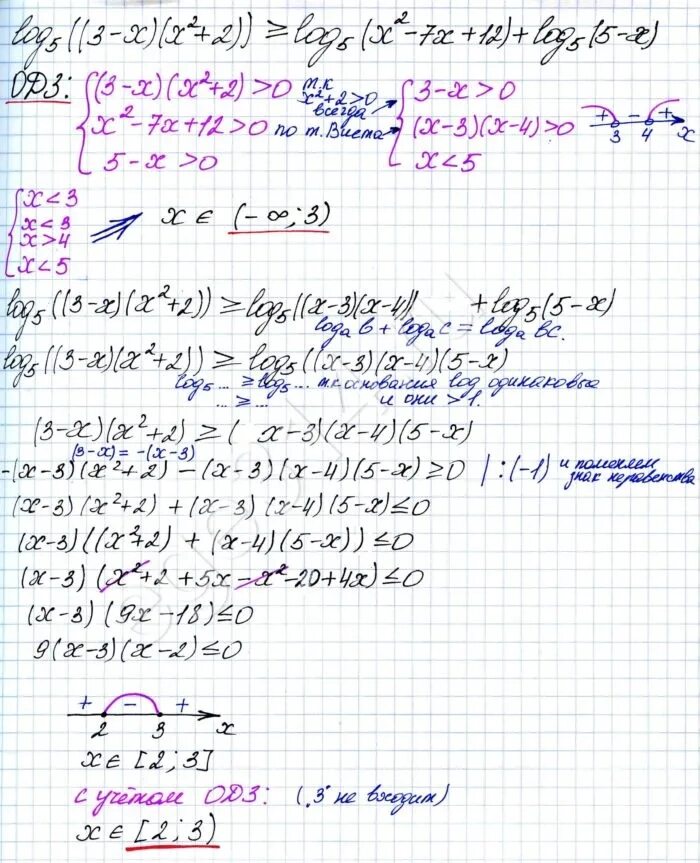 log₅((3-x)(x²+2)) ≥ log₅(x²-7x+12) + log₅(5-x)
ОДЗ: { (3-x)(x²+2) > 0 т.к x²+2>0 всегда { 3-x > 0
x²-7x+12 > 0 по т. Виета (x-3)(x-4) > 0 + 3 - 4 + x
5-x > 0 x < 5
{ x < 3
x < 3
x > 4
x < 5
⇒ x ∈ (-∞; 3)
log₅((3-x)(x²+2)) ≥ log₅((x-3)(x-4)) + log₅(5-x)
logₐb + logₐc = logₐbc.
log₅((3-x)(x²+2)) ≥ log₅((x-3)(x-4)(5-x)
log₅... ≥ log₅... т.к основания log одинаковые
... ≥ ... и они > 1.
(3-x)(x²+2) ≥ ( x-3)(x-4)(5-x)
(3-x) = -(x-3)
-(x-3)(x²+2) - (x-3)(x-4)(5-x) ≥ 0 | :(-1) и поменяем знак неравенства
(x-3)(x²+2) + (x-3)(x-4)(5-x) ≤ 0
(x-3)((x²+2) + (x-4)(5-x)) ≤ 0
(x-3)(x²+2+5x-x²-20+4x) ≤ 0
(x-3)(9x-18) ≤ 0
9(x-3)(x-2) ≤ 0
+ - +
2 3 x
x ∈ [2; 3]
с учётом ОДЗ: (.3 не входит)
x ∈ [2; 3)